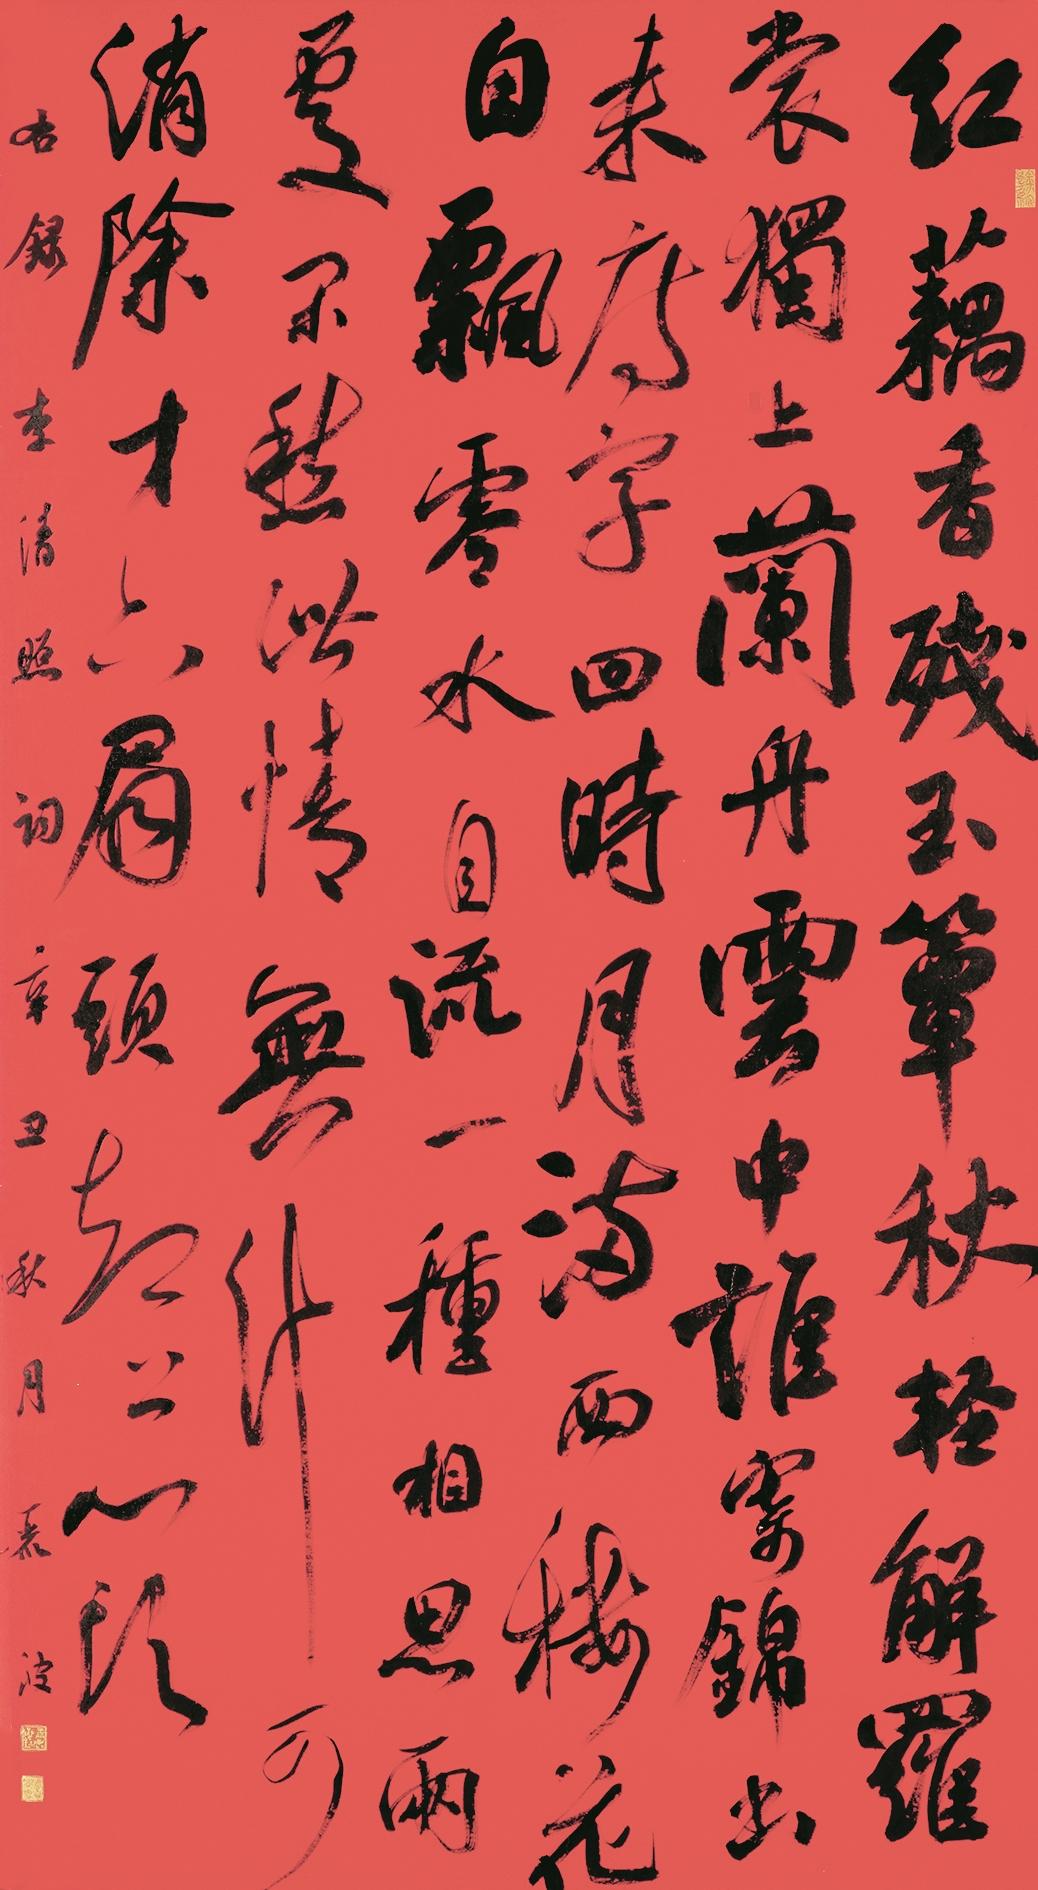 紅藕香殘玉簟秋輕解羅
裳獨上蘭舟雲中誰寄錦書
來雁字回時月滿西樓花
自飄零水自流一種相思兩
處閑愁此情無計可
消除才下眉頭卻上心頭
右録李清照詞辛丑秋月